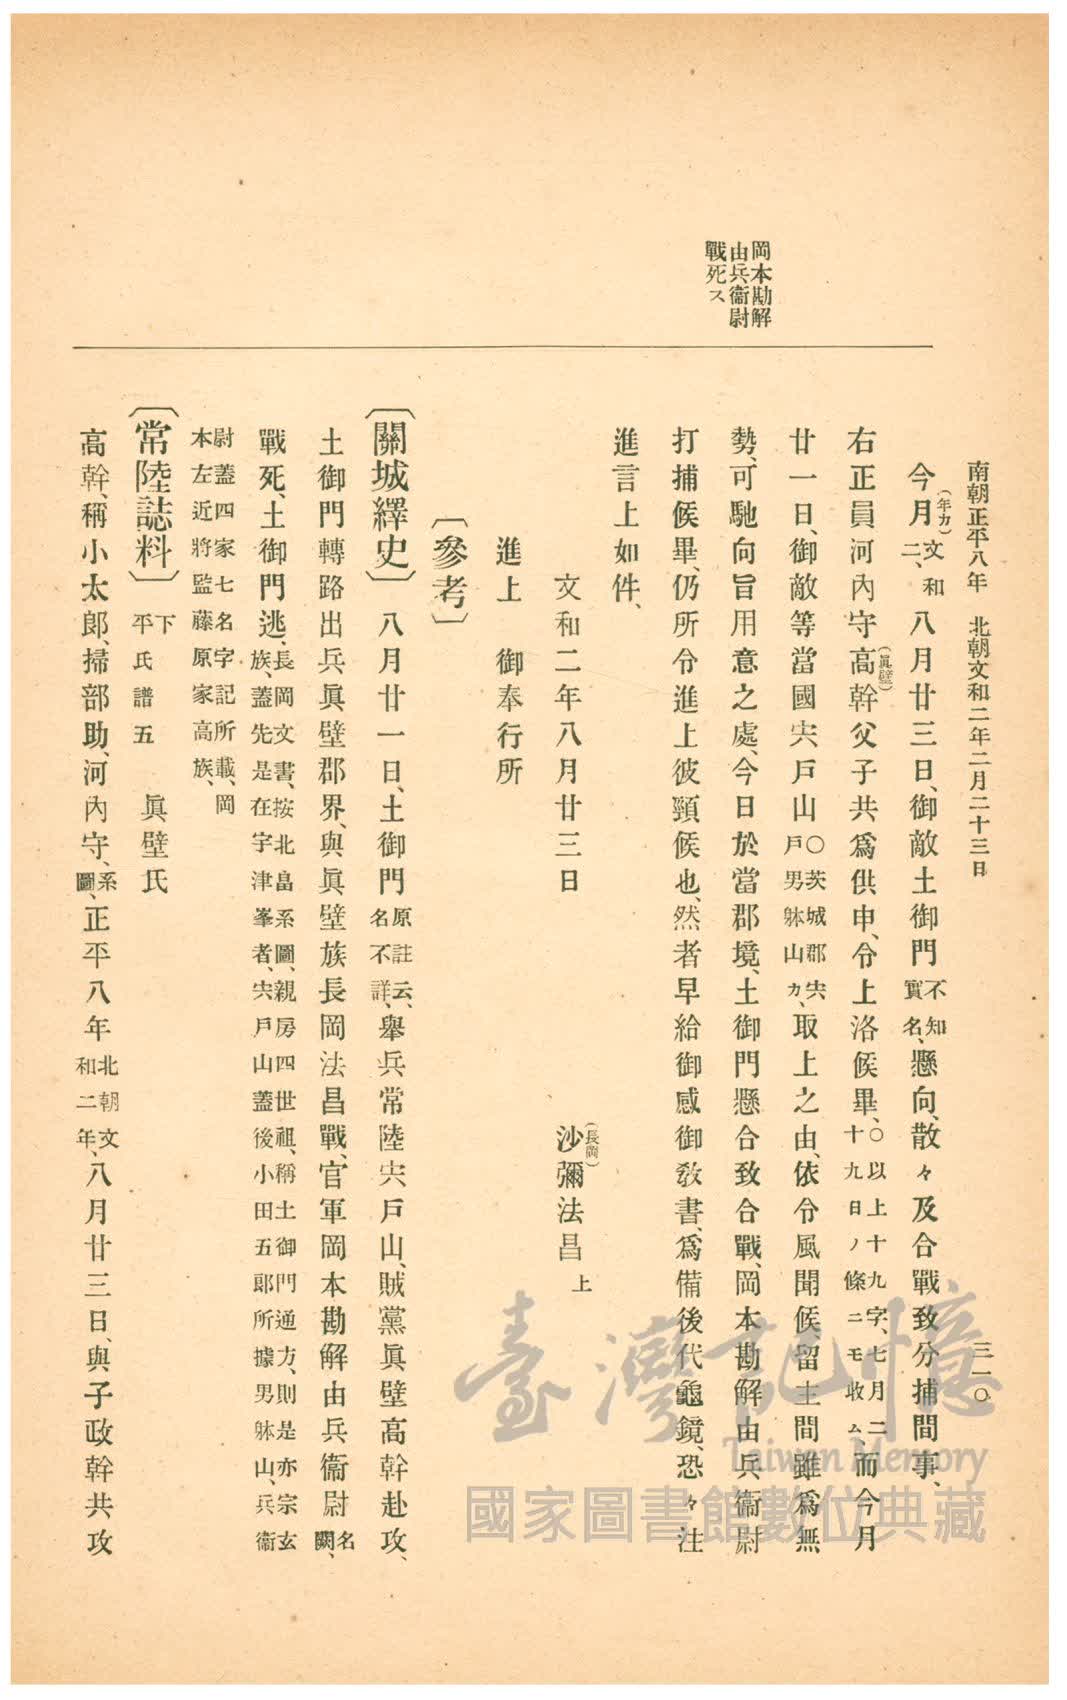 南朝正平八年　北朝文和二年二月二十三日
三一〇
岡本勘解
由兵衞尉
戰死ス
今月(年カ)文和二、八月廿三日、御敵土御門不知實名、懸向、散々及合戰致分捕間事、
右正員河內守(眞壁)高幹父子共爲供申、令上洛候畢、〇以上十九字、七月二十九日ノ條ニモ收ム、而今月
廿一日、御敵等當國宍戶山〇茨城郡宍戶男躰山カ、取上之由、依令風聞候留主間雖爲無
勢、可馳向旨用意之處、今日於當郡境、土御門懸合致合戰、岡本勘解由兵衞尉
打捕候畢、仍所令進上彼頸候也、然者早給御感御敎書、爲備後代龜鏡、恐々注
進言上如件、
文和二年八月廿三日　沙彌(長岡)法昌上
進上　御奉行所
〔參考〕
〔關城繹史〕八月廿一日、土御門原註云、名不詳、舉兵常陸宍戶山、賊黨眞壁高幹赴攻、
土御門轉路出兵眞壁郡界、與眞壁族長岡法昌戰、官軍岡本勘解由兵衞尉名闕、
戰死、土御門逃、長岡文書、按北畠系圖、親房四世祖、稱土御門通方、則是亦宗玄族、蓋先是在宇津峯者、宍戶山蓋後小田五郞所據男躰山、兵衞
尉蓋四家七名字記所載、岡本左近將監藤原家高族、
〔常陸誌料〕平氏譜五下　眞壁氏
高幹、稱小太郞、掃部助、河內守、系圖、正平八年北朝文和二年、八月廿三日、與子政幹共攻
臺灣記憶
Taiwan Memory
國家圖書館數位典藏